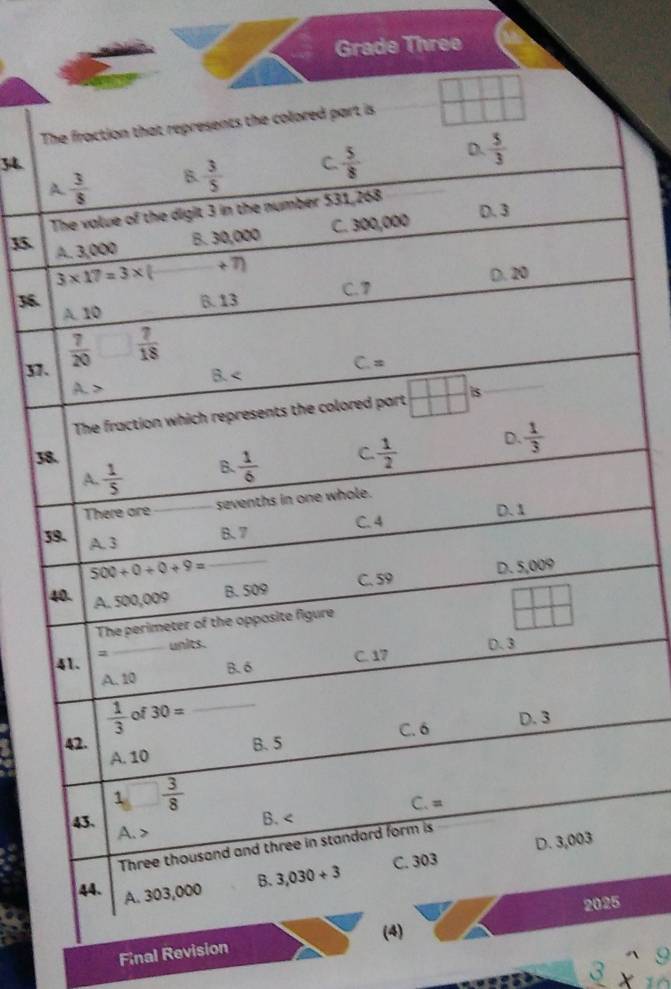 Grade Three
34. The fraction that represents the colored part is
A. 3/8 B. 3/5 C. 5/8 D. 5/3
35. The value of the digit 3 in the number 531,268
A. 3,000 B. 30,000 C. 300,000 D. 3
36. 3 × 17 = 3 × ( + 7)
A. 10 B. 13 C. 7 D. 20
37. 7/20 7/18
A. > B. < C. =
38. The fraction which represents the colored part is
A. 1/5 B. 1/6 C. 1/2 D. 1/3
39. There are sevenths in one whole.
A. 3 B. 7 C. 4 D. 1
40. 500 + 0 + 0 + 9 =
A. 500,009 B. 509 C. 59 D. 5,009
The perimeter of the opposite figure
41. = units.
A. 10 B. 6 C. 17 D. 3
42. 1/3 of 30 =
A. 10 B. 5 C. 6 D. 3
43. 1 3/8
A. > B. < C. =
44. Three thousand and three in standard form is
A. 303,000 B. 3,030 + 3 C. 303 D. 3,003
Final Revision (4) 2025
3 × 9